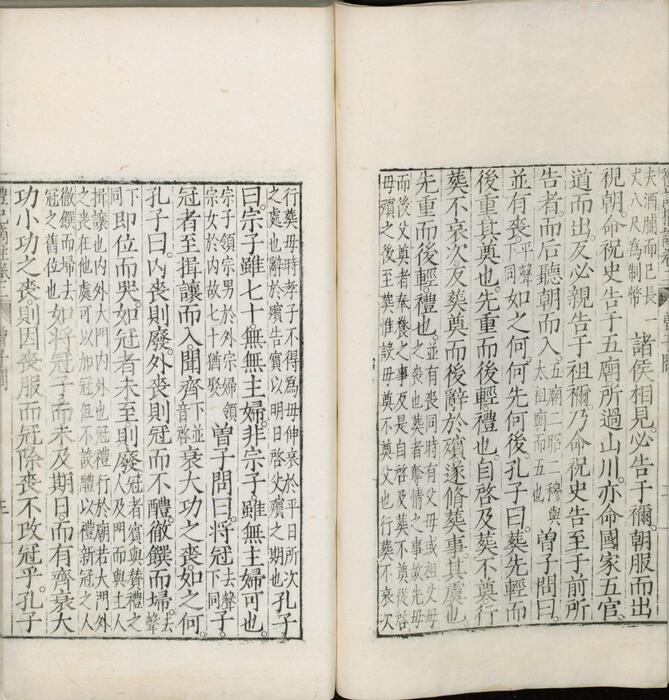 夫酒脯而已長一
丈八尺爲制幣
諸侯相見必告于禰朝服而出
視朝命祝史告于五廟所過山川亦命國家五官
道而出反必親告于祖禰乃命祝史告至于前所
告者而后聽朝而入
五廟二昭二穆與
太祖廟而五也
曾子問曰
並有喪
平聲
下同
如之何何先何後孔子曰葬先輕而
後重其奠也先重而後輕禮也自啓及葬不奠行
葬不哀次反葬奠而後辭於殯遂脩葬事其虞也
先重而後輕禮也
並有喪同時有父母或祖父母
之喪也葬者奪情之事故先母
而後父奠者奉養之事
及是自啓及葬不奠從啓
母殯之後至葬惟設母奠不奠父也行葬不哀次
行葬母時孝子不得爲母伸哀於平日所次
之處也辭於殯告賓以明日啓父殯之期也
孔子
曰宗子雖七十無無主婦非宗子雖無主婦可也
宗子領宗男於外宗婦領
宗女於内故七十猶娶
曾子問曰將冠
去聲
下同
子
冠者至揖讓而入聞齊
下並
音咨
衰大功之喪如之何
孔子曰内喪則廢外喪則冠而不醴徹饌而埽
去
聲
下
同
即位而哭如冠者未至則廢
冠者賓與賛禮之
人及門而與主人
揖讓也内外大門内外也冠禮行於廟若大門外
之喪在他處可以加冠但不設醴以禮新冠之人
徹饌而埽去
冠之舊位也
如將冠子而未及期日而有齊衰大
功小功之喪則因喪服而冠除喪不改冠乎孔子